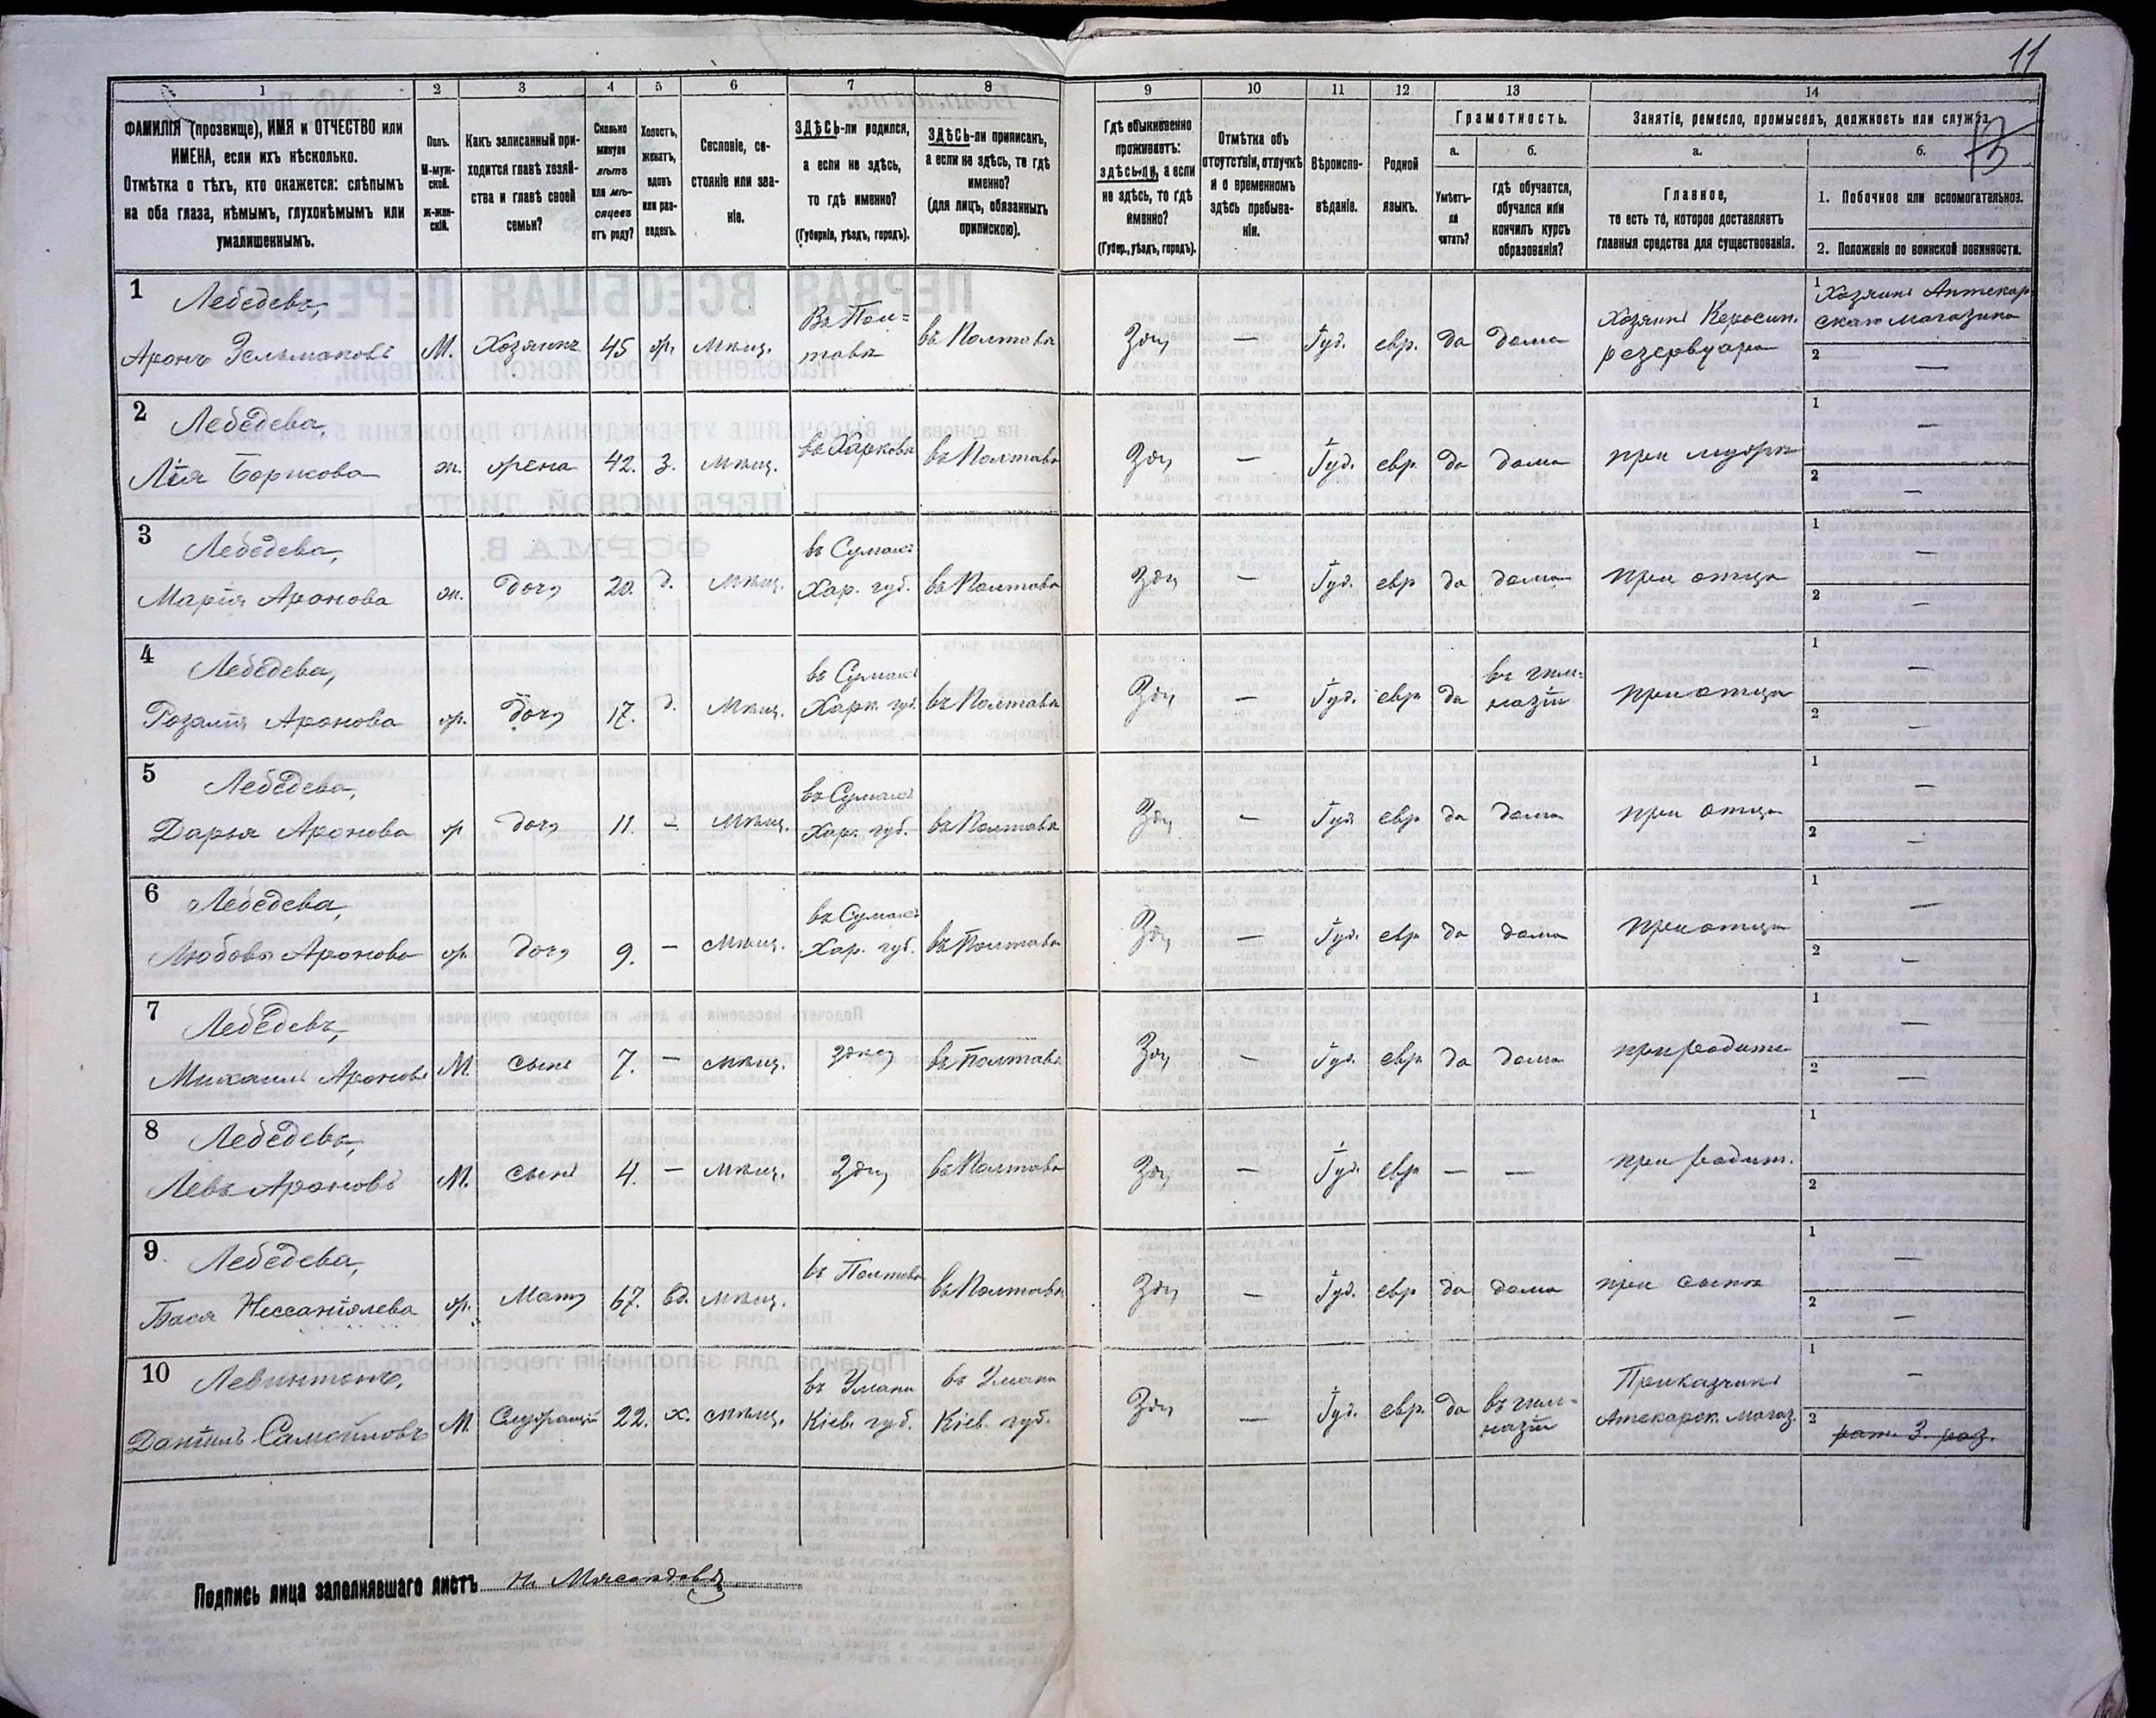 11
13
1 2 3 4 5 6 7 8 9 10 11 12 13 14
ФАМИЛІЯ (прозвище), ИМЯ и ОТЧЕСТВО или
ИМЕНА, если ихъ нѣсколько.
Отмѣтка о тѣхъ, кто окажется: слѣпымъ
на оба глаза, нѣмымъ, глухонѣмымъ или
умалишеннымъ.
Полъ.
М-муж-
ской.
ж-жен-
скій.
Какъ записанный при-
ходится главѣ хозяй-
ства и главѣ своей
семьи?
Сколько
минуло
лѣтъ
или мѣ-
сяцевъ
отъ роду?
Холостъ,
женатъ,
вдовъ
или раз-
веденъ.
Сословіе, со-
стояніе или зва-
ніе.
ЗДѢСЬ-ли родился,
а если не здѣсь,
то гдѣ именно?
(Губернія, уѣздъ, городъ).
ЗДѢСЬ-ли приписанъ,
а если не здѣсь, то гдѣ
именно?
(для лицъ, обязанныхъ
припискою).
Гдѣ обыкновенно
проживаетъ:
здѣсь-ли, а если
не здѣсь, то гдѣ
именно?
(Губер., уѣздъ, городъ).
Отмѣтка объ
отсутствіи, отлучкѣ
и о временномъ
здѣсь пребыва-
ніи.
Вѣроиспо-
вѣданіе.
Родной
языкъ.
Грамотность.
а.
Умѣетъ-
ли
читать?
б.
гдѣ обучается,
обучался или
кончилъ курсъ
образованія?
Занятіе, ремесло, промыселъ, должность или служба.
а.
Главное,
то есть то, которое доставляетъ
главныя средства для существованія.
б.
1. Побочное или вспомогательное.
2. Положеніе по воинской повинности.
1 Лебедевъ,
Аронъ Зельмановъ М. Хозяинъ 45 ж. мѣщ. Въ Пол=
тавѣ въ Полтавѣ Здѣсь — Іуд. евр. да дома Хозяинъ Керосин.
резервуара 1 Хозяинъ Аптекар
скаго магазина
2 —
2 Лебедева,
Лія Борисова ж. жена 42. з. мѣщ. въ Харьковѣ въ Полтавѣ Здѣсь — Іуд. евр. да дома при мужѣ 1 —
2 —
3 Лебедева,
Марія Аронова ж. дочь 20. д. мѣщ. въ Сумахъ
Хар. губ. въ Полтавѣ Здѣсь — Іуд. евр да дома при отцѣ 1 —
2 —
4 Лебедева,
Розалія Аронова ж. дочь 17. д. мѣщ. въ Сумахъ
Харк губ. въ Полтавѣ Здѣсь — Іуд. евр да въ гим-
назіи при отцѣ 1 —
2 —
5 Лебедева,
Дарья Аронова ж дочь 11. — мѣщ. въ Сумахъ
Хар. губ. въ Полтавѣ Здѣсь — Іуд евр да дома при отцѣ 1 —
2 —
6 Лебедева,
Любовь Аронова ж. дочь 9. — мѣщ. въ Сумахъ
Хар. губ. въ Полтавѣ Здѣсь — Іуд. евр да дома при отцѣ 1 —
2 —
7 Лебедевъ,
Михаилъ Ароновъ М. сынъ 7. — мѣщ. здѣсь въ Полтавѣ Здѣсь — Іуд. евр да дома при родите 1 —
2 —
8 Лебедевъ,
Левъ Ароновъ М. сынъ 4. — мѣщ. Здѣсь въ Полтавѣ Здѣсь — Іуд. евр — — при родит. 1
2
9 Лебедева,
Бася Нессаніолева ж. Мать 67. вд. мѣщ. въ Полтавѣ въ Полтавѣ Здѣсь — Іуд. евр да дома при сынѣ 1 —
2 —
10 Левинтонъ,
Даніилъ Самойловъ М. Служащій 22. х. мѣщ. въ Умани
Кіев. губ. въ Умани
Кіев. губ. Здѣсь — Іуд. евр. да въ гим-
назіи Приказчикъ
Атекарск. магаз. 1 —
2 рат. 3 раз.
Подпись лица заполнявшаго листъ Н. Мясоѣдовъ